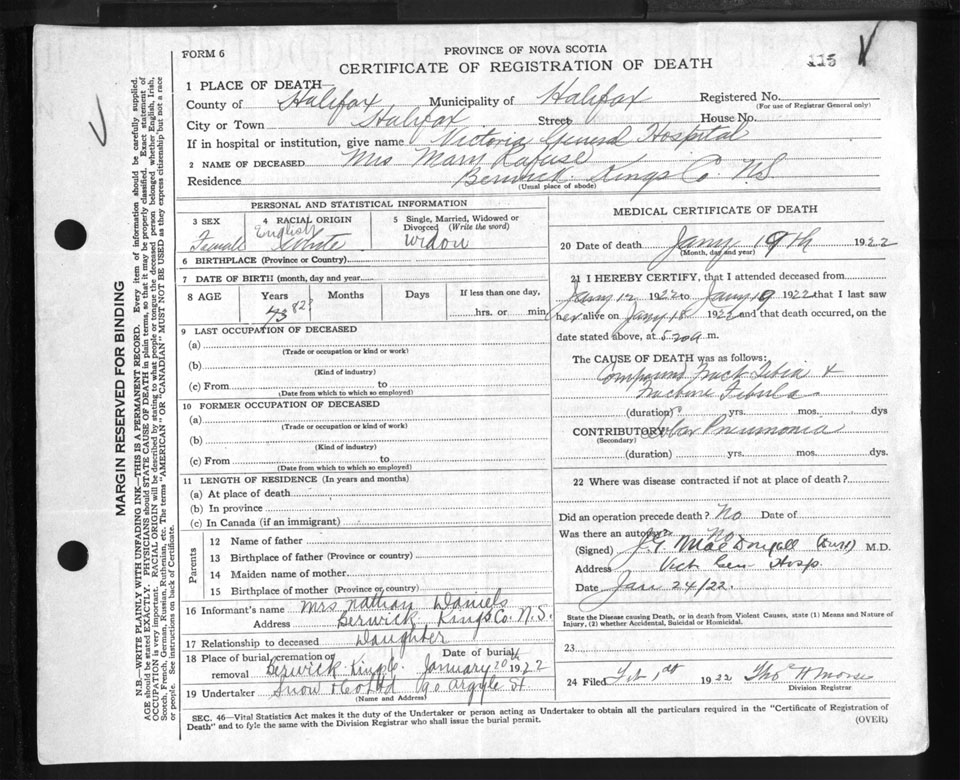 FORM 6
PROVINCE OF NOVA SCOTIA
CERTIFICATE OF REGISTRATION OF DEATH
115
1 PLACE OF DEATH
County of Halifax Municipality of Halifax Registered No.
(For use of Registrar General only)
City or Town Halifax Street House No.
If in hospital or institution, give name Victoria General Hospital
2 NAME OF DECEASED Mrs Mary Lafuse
Residence Berwick Kings Co. N.S.
(Usual place of abode)
PERSONAL AND STATISTICAL INFORMATION
3 SEX Female
4 RACIAL ORIGIN English White
5 Single, Married, Widowed or Divorced (Write the word) Widow
6 BIRTHPLACE (Province or Country)
7 DATE OF BIRTH (month, day and year)
8 AGE Years Months Days If less than one day,
82? hrs. or min
9 LAST OCCUPATION OF DECEASED
(a)
(Trade or occupation or kind or work)
(b)
(Kind of industry)
(c) From to
(Date from which to which so employed)
10 FORMER OCCUPATION OF DECEASED
(a)
(Trade or occupation or kind of work)
(b)
(Kind of industry)
(c) From to
(Date from which to which so employed)
11 LENGTH OF RESIDENCE (In years and months)
(a) At place of death
(b) In province
(c) In Canada (if an immigrant)
Parents
12 Name of father
13 Birthplace of father (Province or country)
14 Maiden name of mother
15 Birthplace of mother (Province or country)
16 Informant's name Mrs Nathan Daniels
Address Berwick Kings Co. N.S.
17 Relationship to deceased Daughter
18 Place of burial, cremation or removal Berwick Kings Co. Date of burial January 20 1922
19 Undertaker Snow & Co Ltd 90 Argyle St
(Name and Address)
MEDICAL CERTIFICATE OF DEATH
20 Date of death Jany 19th 1922
(Month, day and year)
21 I HEREBY CERTIFY, that I attended deceased from
Jany 12 1922 to Jany 19 1922 that I last saw
her alive on Jany 18 1922 and that death occurred, on the
date stated above, at 5 20 a m.
The CAUSE OF DEATH was as follows:
Compound Fract Tibia &
Fracture Fibula
(duration) yrs. mos. dys
CONTRIBUTORY Lobar Pneumonia
(Secondary)
(duration) yrs. mos. dys.
22 Where was disease contracted if not at place of death?
Did an operation precede death? No Date of
Was there an autopsy? No
(Signed) J.G. MacDougall M.D.
Address Vict Gen Hosp.
Date Jan 24/22.
State the Disease causing Death, or in death from Violent Causes, state (1) Means and Nature of
Injury, (2) whether Accidental, Suicidal or Homicidal.
23
24 Filed Feb 1st 1922
Division Registrar
SEC. 46—Vital Statistics Act makes it the duty of the Undertaker or person acting as Undertaker to obtain all the particulars required in the "Certificate of Registration of
Death" and to fyle the same with the Division Registrar who shall issue the burial permit.
(OVER)
MARGIN RESERVED FOR BINDING
N.B.—WRITE PLAINLY WITH UNFADING INK—THIS IS A PERMANENT RECORD. Every item of information should be carefully supplied.
AGE should be stated EXACTLY. PHYSICIANS should STATE CAUSE OF DEATH in plain terms, so that it may be properly classified. Exact statement of
OCCUPATION is very important. RACIAL ORIGIN will be described by stating to what people or tongue the deceased person belonged whether English, Irish,
Scotch, French, German, Russian, Ruthenian, etc. The terms "AMERICAN" OR "CANADIAN" MUST NOT BE USED as they express citizenship but not a race
or people. See instructions on back of Certificate.